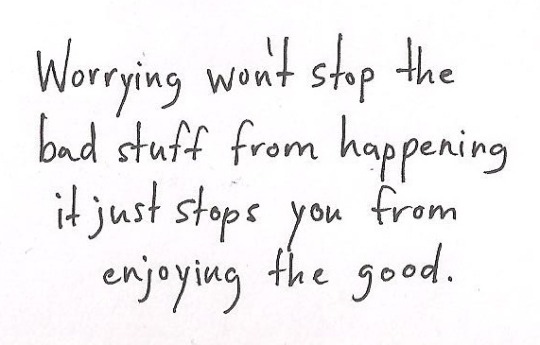 Worrying won't stop the
bad stuff from happening
it just stops you from
enjoying the good.